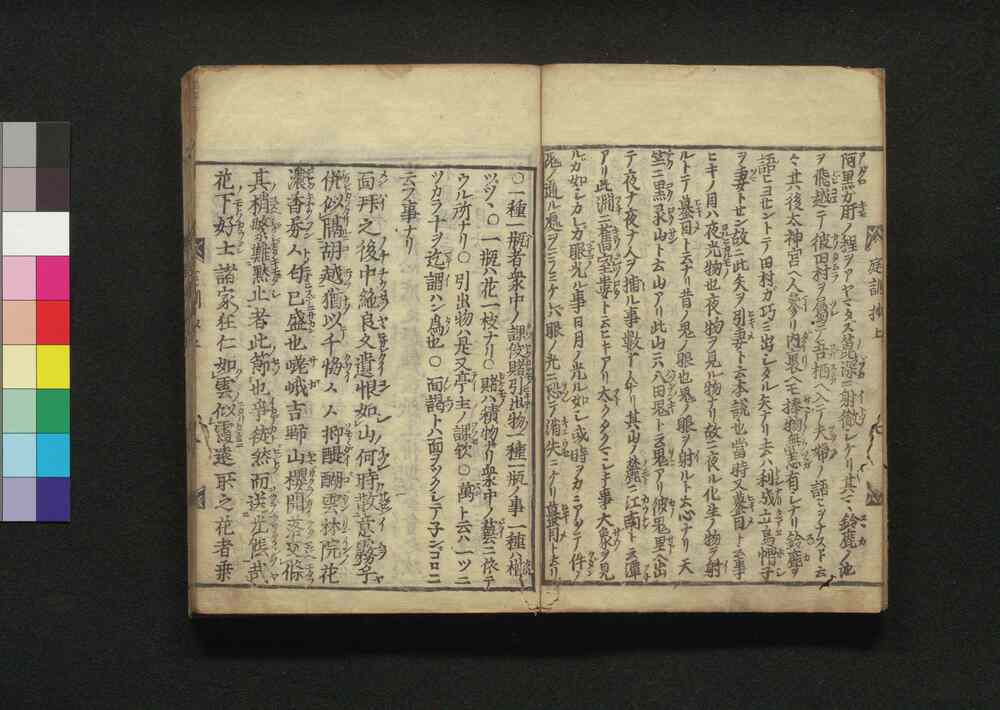 庭訓抄上
ヲ飛越テ彼田村ヲ
々其後太神宮ヘ人参リ内裏ヘモ捧物無恙有シナリ鈴鹿ヲ
語ヒヨセントテ田村カ巧ミ出シタル矢ナリ去ハ利成立烏帽子
ヲ妻トせン故ニ此矢ヲ引妻ト云本説也當時又蟇目ト云事
ヒキノ目ハ夜光物也夜物ヲ見ル物ナリ故ニ夜ル化生ノ物ヲ射
ルトテ蟇目ト云ナリ昔ノ鬼ノ眼也鬼ノ眼ヲ射ルト云心ナリ天
竺ニ黒录山ト云山アリ此山ニハ田鬼ト云鬼アリ彼鬼里ヘ出
テ夜ナ夜ナ人ヲ捕ル事數ヲ不知ナリ其山ノ麓ニ江南ト云潭
アリ此淵ニ
ルカ如シカレカ眼光ル事日月ノ光ル如シ或時ヲカニアカテ件ノ
鬼ノ通ル處ヲニラミケレハ眼ノ光ニ恐テ消失ニケリ蟇目ト云リ
○一種一瓶者衆中ノ課役賭引出物一種一瓶ノ事一種ハ樽
ツヅヽ○一瓶ハ花一枝ナリ○賭ハ積物ナリ衆中ノ藝ニ依テ
ウル所ナリ○引出物ハ是又亭主ノ課欤○萬ト云ハ一ツニ
ツカラナヲ迄謂ハン為也○面謁トハ面ヲツクシテ子ンゴロニ
云フ事ナリ
面拜之後中絶良久遺恨如山何時散意霧乎
併似隔胡越猶以千悔々々抑醍醐雲林院花
濃香芬々匂已盛也嵯峨吉野山櫻開落交條
其梢繁難黙止者此節也爭徒然而送光陰哉
花下好士諸家狂仁如雲似霞遠所之花者乗